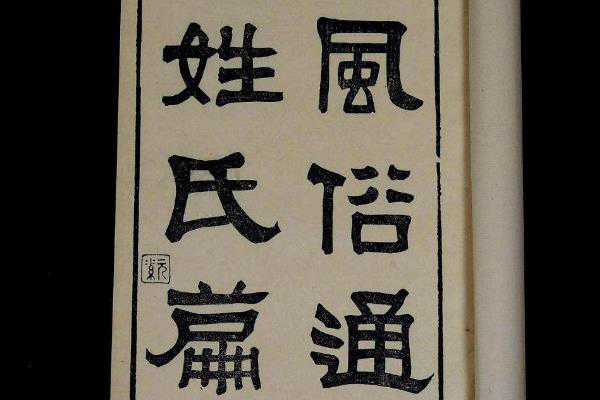 風俗通
姓氏篇